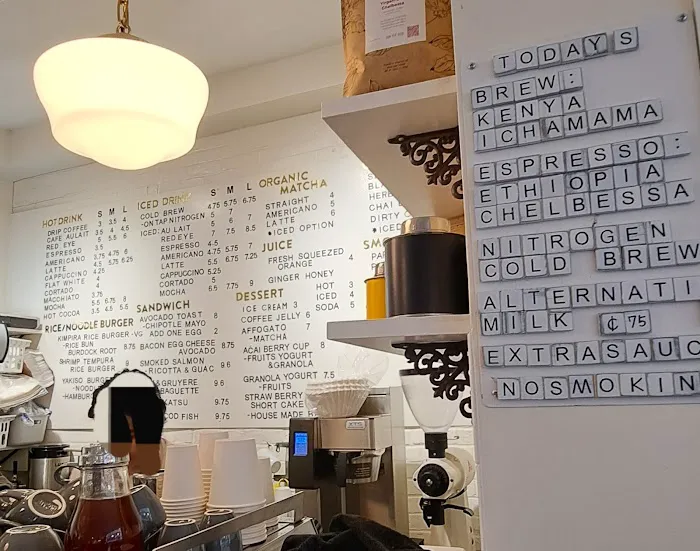 HOT DRINK S M L
DRIP COFFEE 3 3.5 4
CAFE AU LAIT 4 4.5 5
RED EYE 5 5.5 6
ESPRESSO 3.5
AMERICANO 3.75
LATTE 4.5 5.75 6.25
CAPPUCCINO 4.25
FLAT WHITE 4
CORTADO 4
MACCHIATO 3.75
MOCHA 5.5 6.75 8
HOT COCOA
RICE/NOODLE BURGER
KIMPIRA RICE BURGER -VG
-RICE BUN
BURDOCK ROOT 8.75
SHRIMP TEMPURA
RICE BURGER
YAKISO BURGER
-NOOD
-HAMBUR
ICED DRINK S M L
COLD BREW 4.75 5.75 6.75
-ON TAP NITROGEN 5 6 7
ICED: AU LAIT
RED EYE 7 7.5 8.5
ESPRESSO
AMERICANO
LATTE 5.5 6.5 7.25
CAPPUCCINO 5.25
CORTADO 5
MOCHA
SANDWICH
AVOCADO TOAST 8
-CHIPOTLE MAYO
ADD ONE EGG 2
BACON EGG CHEESE
AVOCADO 8.75
SMOKED SALMON
RICOTTA & GUAC 9.6
&GRUYERE
BAGUETTE
KATSU 9.75
COD FISH 9.75
ORGANIC
MATCHA
STRAIGHT 4
AMERICANO 4
LATTE 6
ICED OPTION
JUICE
FRESH SQUEEZED
ORANGE
GINGER HONEY
HOT 3
ICED 4
SODA 5
DESSERT
ICE CREAM 3
COFFEE JELLY 6
AFFOGATO
-MATCHA
AÇAI BERRY CUP 8
-FRUITS YOGURT
&GRANOLA
GRANOLA YOGURT 7.5
-FRUITS
STRAW BERRY
SHORT CAKE
-HOUSE MADE
TODAYS
BREW:
KENYA
ICHAMAMA
ESPRESSO:
ETHIOPIA
CHELBESSA
NITROGEN
COLD BREW
ALTERNATI
MILK ₵75
EXTRASAUC
NOSMOKIN